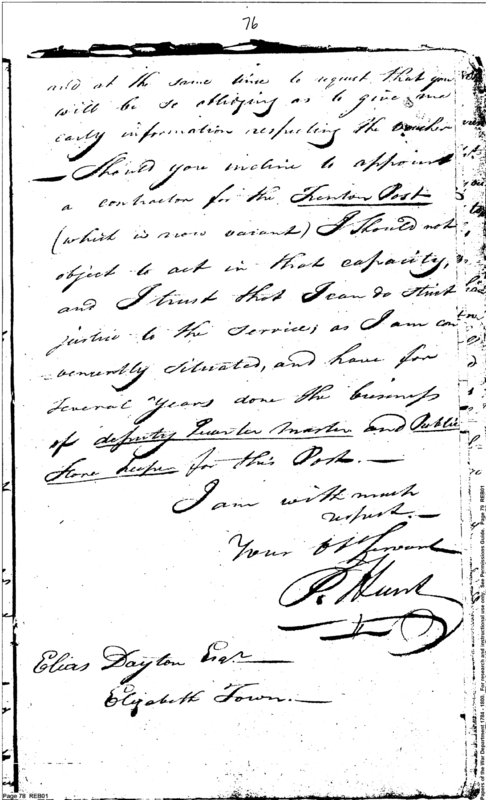 76
and at the same time to request that you
will be so obliging as to give me
early information respecting the voucher
— Should you incline to appoint
a contractor for the Trenton Post
(which is now vacant) I should not
object to act in that capacity,
and I trust that I can do strict
justice to the service; as I am con
veniently situated, and have for
several Years done the business
of deputy Quarter Master and Public
Store keeper for this Post.—
I am with much
respect.—
Your Obt Servant
P. Hunt
Elias Dayton Esqr—
Elizabeth Town.—
Page 78 REB01
Papers of the War Department 1784 - 1800. For research and instructional use only. See Permissions Guide. Page 79 REB01